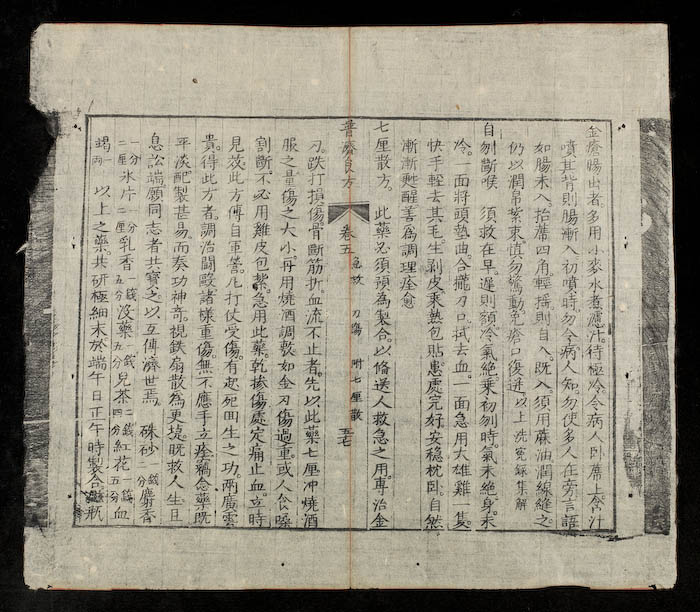 金瘡腸出者多用小麥水煮濾汁待極冷令病人卧蓆上含汁
噴其背則腸漸入初噴時勿令病人知勿使多人在旁言語
如腸未入抬蓆四角輕搖則自入既入須用麻油潤線縫之
仍以潤帛紮束慎勿驚動免瘡口復迸 以上洗冤錄集解
自刎斷喉 須救在早遲則額冷氣絶乘初刎時氣未絶身未
冷一面將頭墊曲合攏刀口拭去血一面急用大雄雞一隻
快手輕去其毛生剝皮乘熱包貼患處完好安穩枕卧自然
漸漸甦醒善為調理痊愈
七厘散方 此藥必須預為製合以備送人救急之用專治金
普濟良方 卷五 急救 刀傷 附七厘散 五七
刃跌打損傷骨斷筋折血流不止者先以此藥七厘冲燒酒
服之量傷之大小再用燒酒調敷如金刃傷過重或人食嗓
割斷不必用雞皮包紮急用此藥乾摻傷處定痛止血立時
見效此方傳自軍營凡打仗受傷有起死回生之功兩廣雲
貴得此方者調治鬪毆諸樣重傷無不應手立痊竊念藥既
平淡配製甚易而奏功神奇視鉄扇散為更捷既救人生且
息訟端願同志者共寶之以互傳濟世焉 硃砂一錢二分 麝香
一分二厘 冰片一分二厘 乳香一錢五分 沒藥一錢五分 兒茶二錢四分 紅花一錢五分 血
竭一兩 以上之藥共研極細末於端午日正午時製合磁瓶